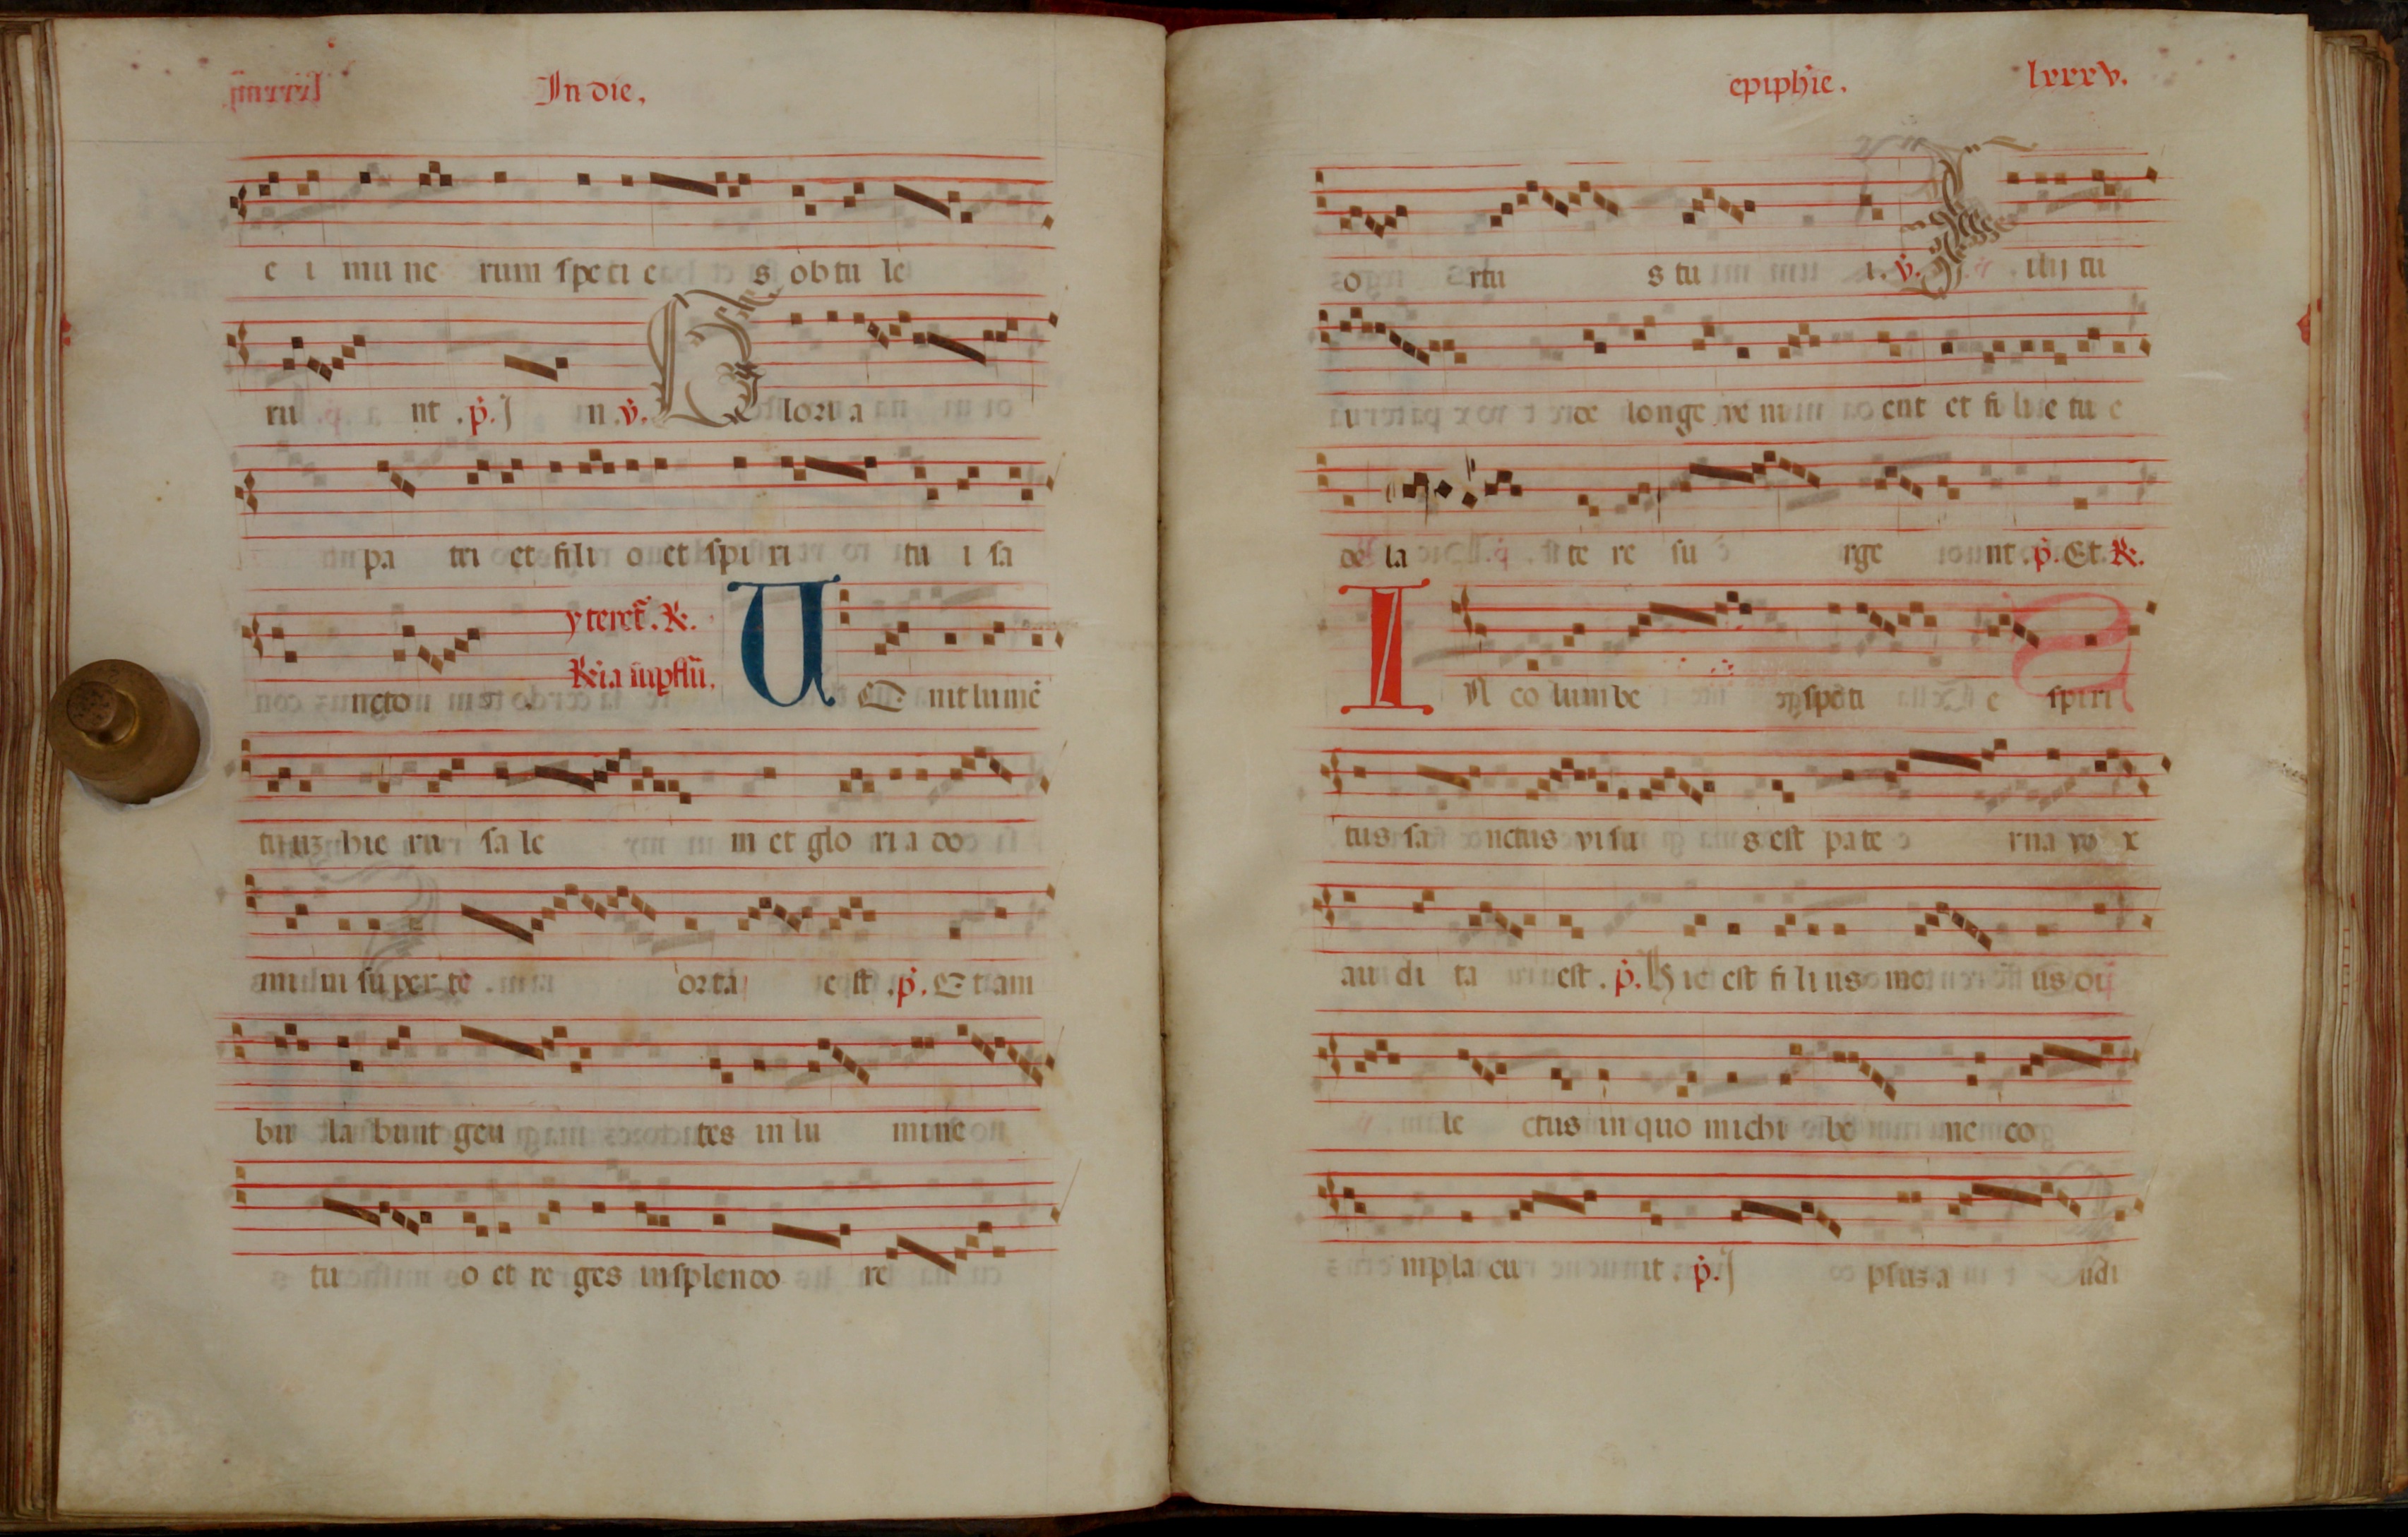 In die.
e i mu ne rum speci e s obtu le
ru nt .p. I n .v. G loria
pa tri et fili o et spi ri tu i sa
ncto
U E nit lumē
tuuz hie ru sa le m et glo ri a do
mini su per te orta e st .p. E t am
bu la bunt gen tes in lu mine
tu o et re ges in splendo re
epiphie. lxxxv.
o rtu s tu i. v. F ilij tu
i de longe ve ni ent et fi lie tu e
de la te re su rge nt .p. Et. R.
I N co lumbe speci e spiri
tus sa nctus visu s est pate rna vo x
au di ta est .p. H ic est fi li us me us di
le ctus in quo michi be ne co
mpla cu it .p. I psuz a udi